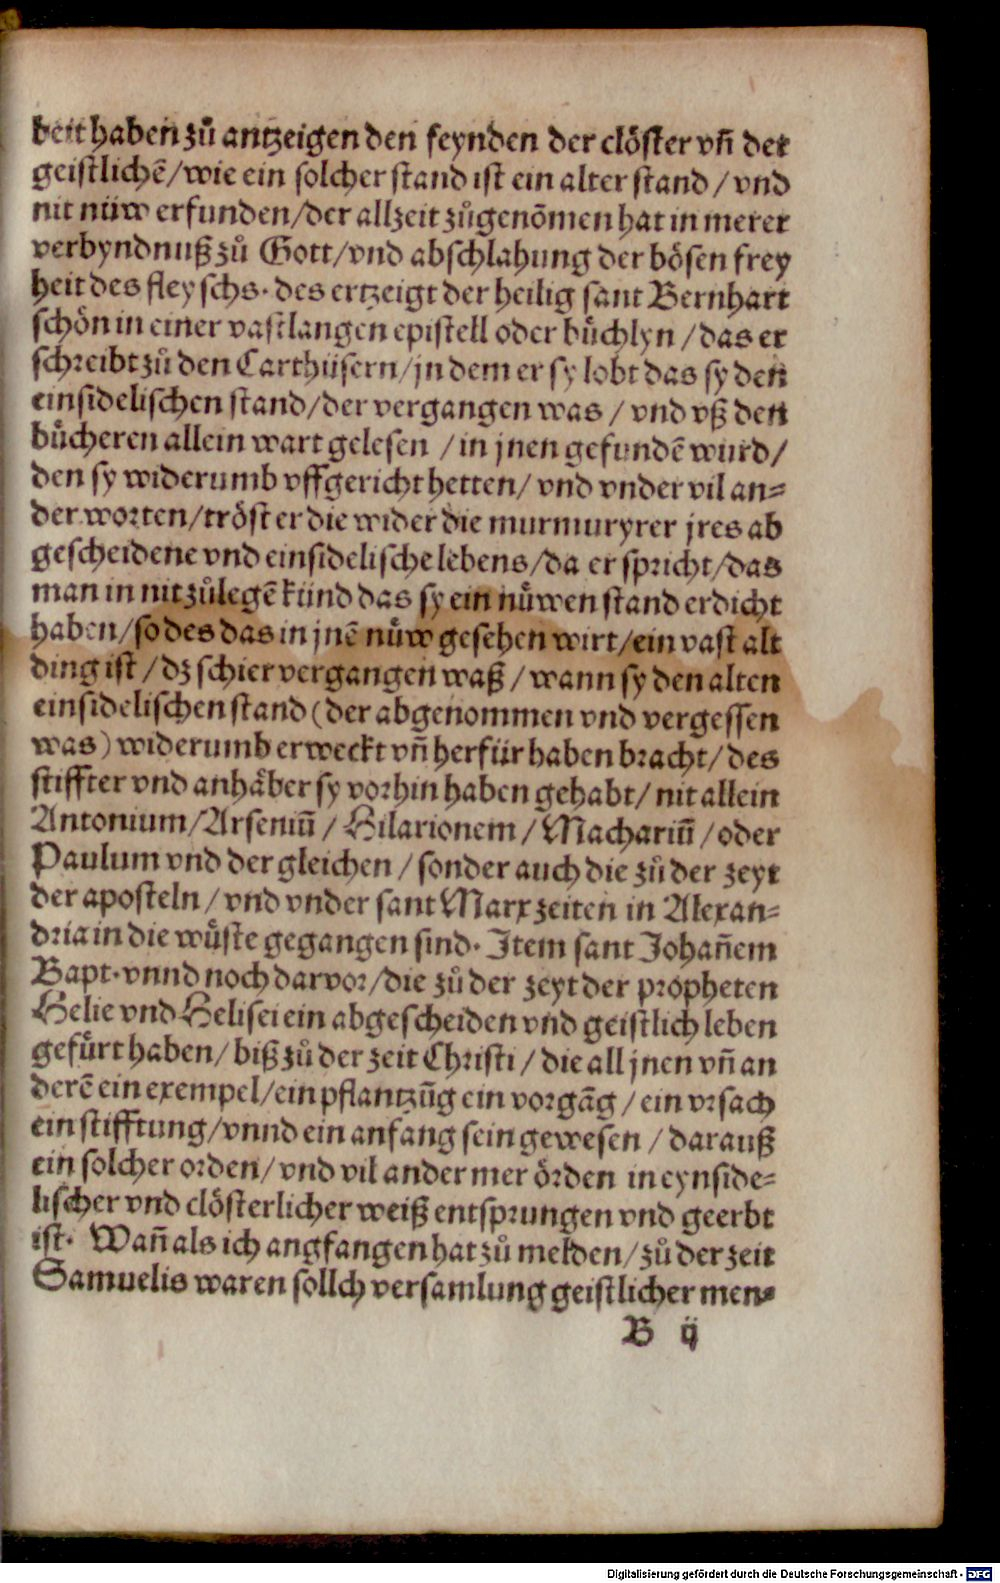 beit haben zů antzeigen den feynden der clöster vñ der
geistlichē/wie ein solcher stand ist ein alter stand/vnd
nit nüw erfunden/der allzeit zůgenōmen hat in merer
verbyndnuß zů Gott/vnd abschlahung der bösen frey
heit des fleyschs. des ertzeigt der heilig sant Bernhart
schön in einer vast langen epistell oder bůchlyn/das er
schreibt zů den Carthüsern/jn dem er sy lobt das sy den
einsidelischen stand/der vergangen was/vnd vß den
bůcheren allein wart gelesen/in jnen gefundē wurd/
den sy widerumb vffgericht hetten/vnd vnder vil an=
der worten/tröst er die wider die murmuryrer jres ab
gescheidene vnd einsidelische lebens/da er spricht/das
man in nit zůlegē künd das sy ein nüwen stand erdicht
haben/so des das in jnē nüw gesehen wirt/ein vast alt
ding ist/dz schier vergangen waß/wann sy den alten
einsidelischen stand (der abgenommen vnd vergessen
was) widerumb erweckt vñ herfür haben bracht/des
stiffter vnd anhåber sy vorhin haben gehabt/nit allein
Antonium/Arseniū/Hilarionem/Machariū/oder
Paulum vnd der gleichen/sonder auch die zů der zeyt
der aposteln/vnd vnder sant Marx zeiten in Alexan=
dria in die wůste gegangen sind. Item sant Johañem
Bapt. vnnd noch darvor/die zů der zeyt der propheten
Helie vnd Helisei ein abgescheiden vnd geistlich leben
gefůrt haben/biß zů der zeit Christi/die all jnen vñ an
derē ein exempel/ein pflantzūg ein vorgāg/ein vrsach
ein stifftung/vnnd ein anfang sein gewesen/darauß
ein solcher orden/vnd vil ander mer örden in eynside=
lischer vnd clösterlicher weiß entsprungen vnd geerbt
ist. Wañ als ich angfangen hat zů melden/zů der zeit
Samuelis waren sollch versamlung geistlicher men=
B ij
Digitalisierung gefördert durch die Deutsche Forschungsgemeinschaft - DFG